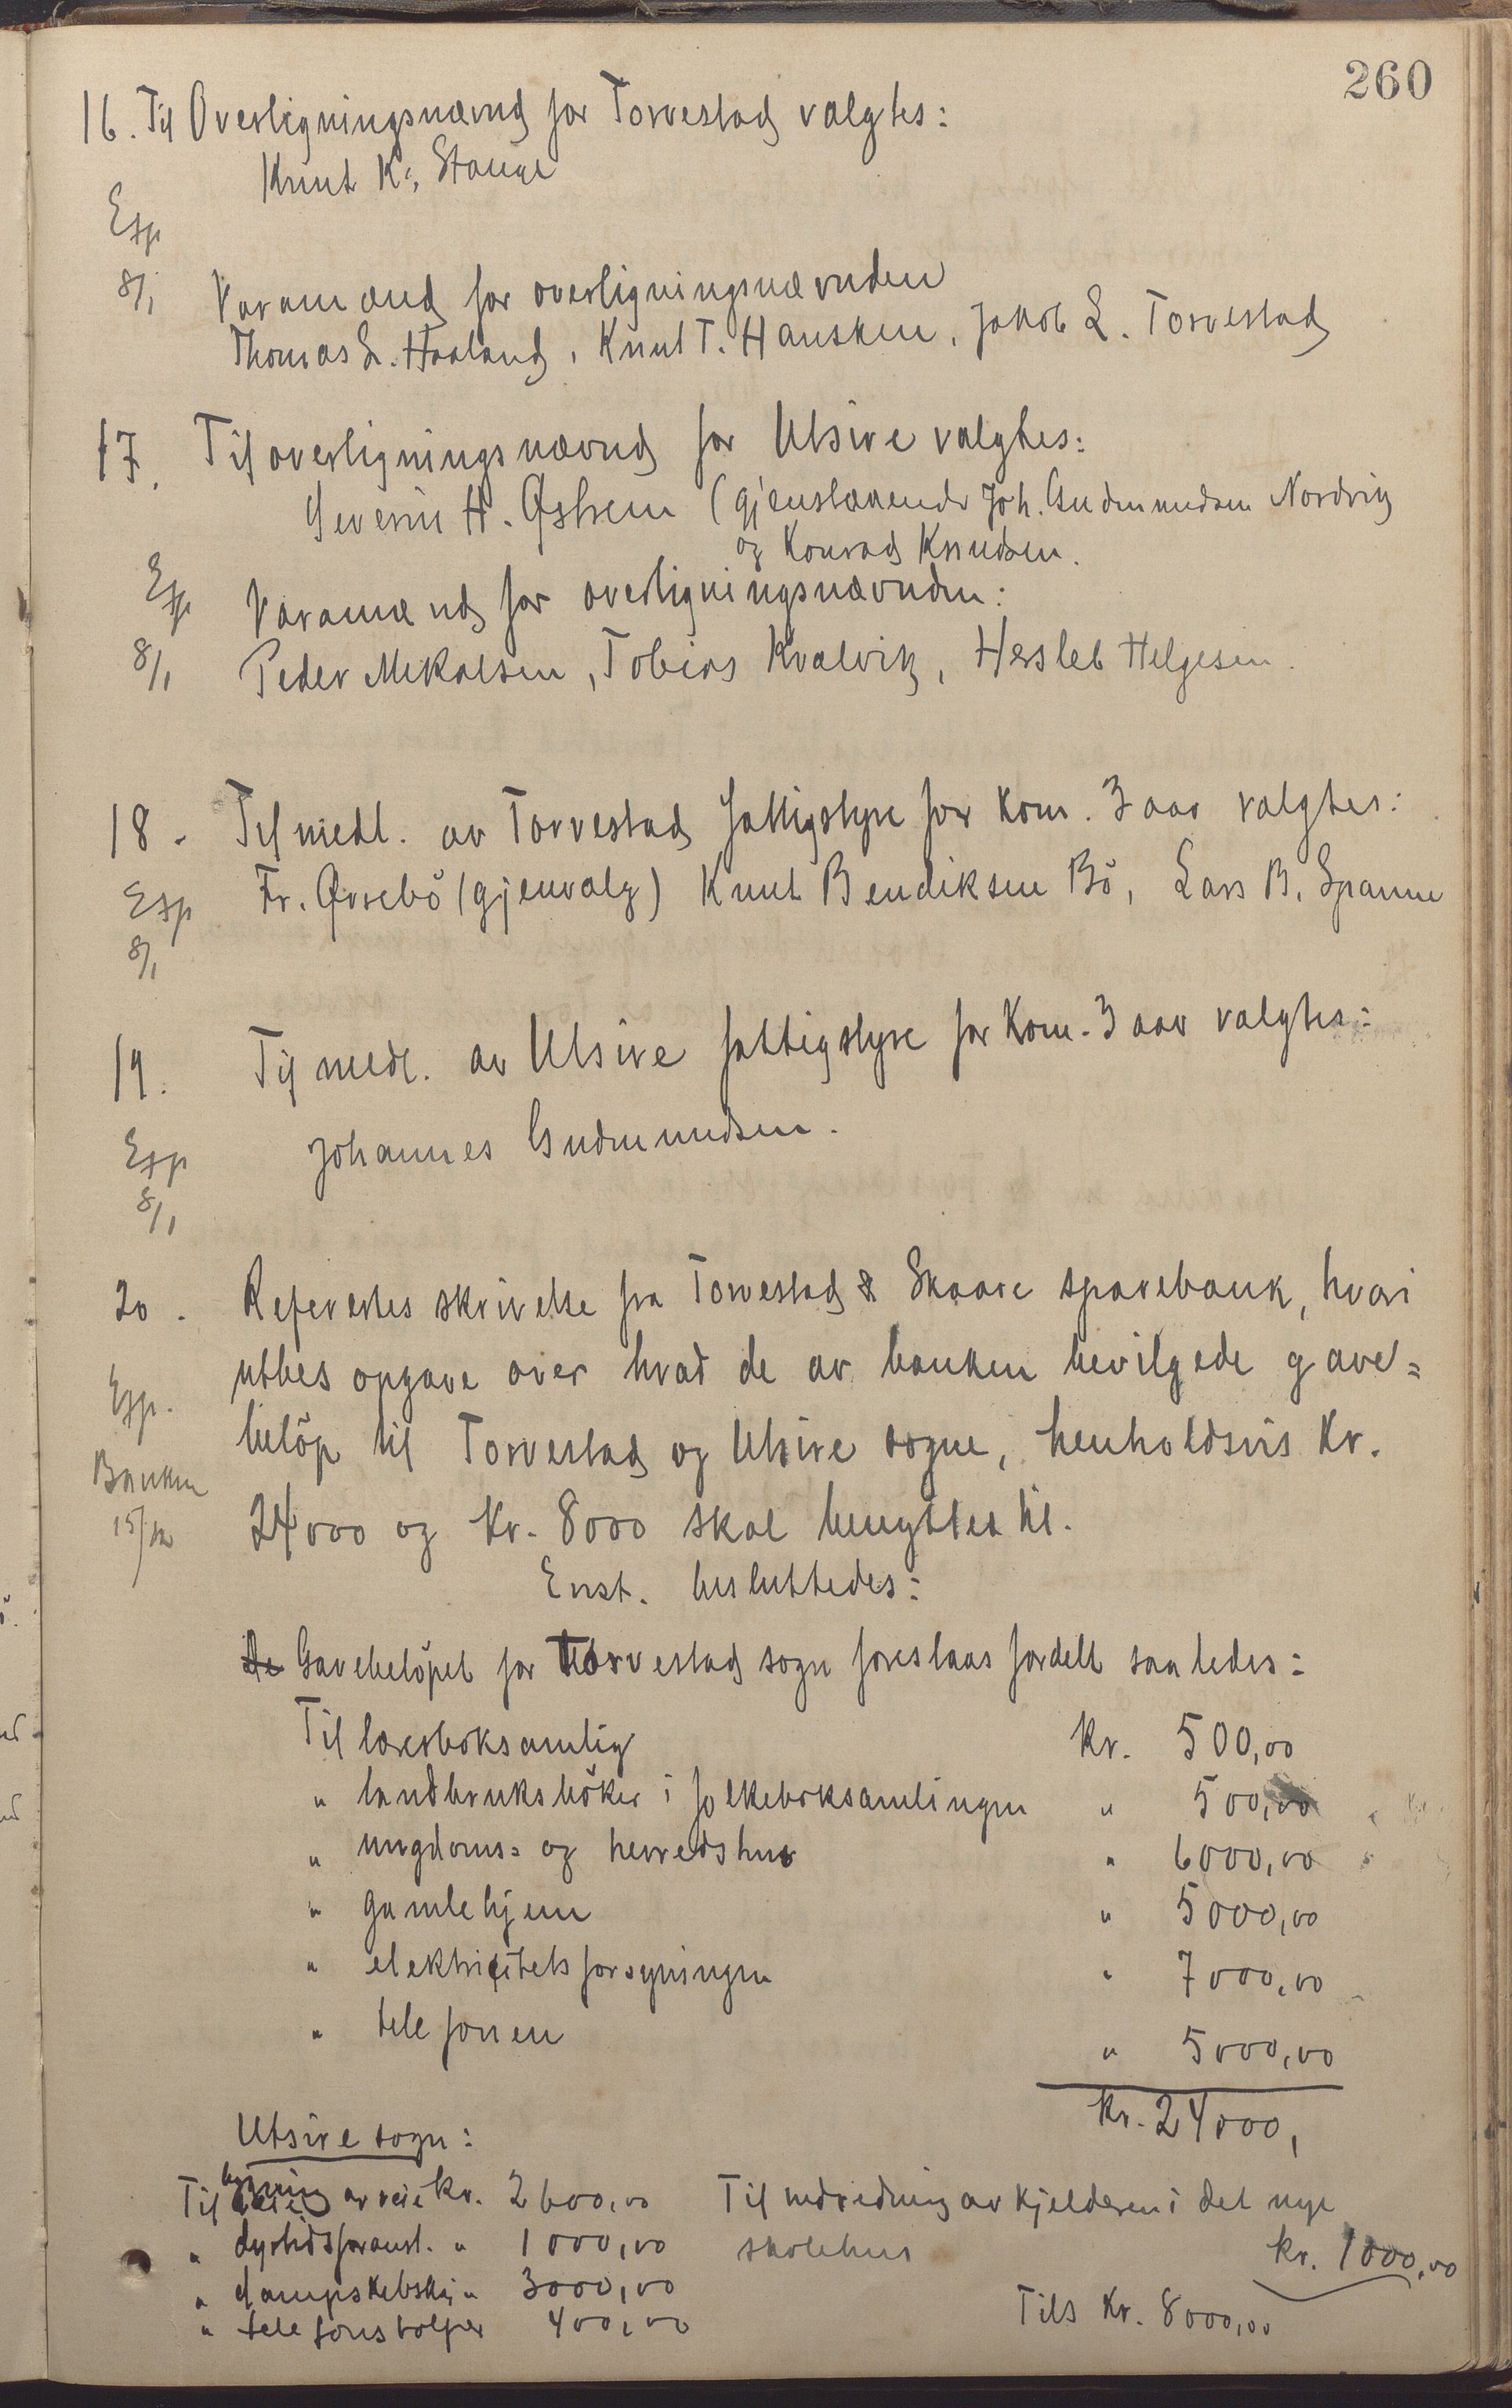 260
16. Til Overligningsnævnd for Torvestad valgtes:
Knut K. Stange
Exp
8/1
Varamænd for overligningsnævnden
Thomas L. Haaland, Knut T. Hausken, Jakob L. Torvestad
17. Til overligningsnævnd for Utsire valgtes:
Severin H. Østrem (gjenstaaende Joh. Gudmundsen Nordvig
og Konrad Knudsen.
Exp
8/1
Varamænd for overligningsnævnden:
Peder Mikalsen, Tobias Kvalvik, Hersleb Helgesen.
18. Til medl. av Torvestad fattigstyre for kom. 3 aar valgtes:
Exp
8/1
Fr. Ørrebö (gjenvalg) Knut Bendiksen Bö, Lars B. Spanne
19. Til medl. av Utsire fattigstyre for kom. 3 aar valgtes:
Exp
8/1
Johannes Gudmundsen.
20. Refereres skrivelse fra Torvestad & Skaare sparebank, hvori
utbes opgave over hvad de av banken bevilgede gave=
Exp.
Banken
15/12
belöp til Torvestad og Utsire sogne, henholdsvis Kr.
24000 og Kr. 8000 skal benyttes til.
Enst. besluttedes:
De Gavebelöpet for Torvestad sogn foreslaas fordelt saaledes:
Til lærerboksamlig Kr. 500,00
" landbruksböker i folkeboksamlingen " 500,00
" ungdoms= og herredshus " 6000,00
" gamlehjem " 5000,00
" elektricitetsforsyningen " 7000,00
" telefonen " 5000,00
Kr. 24000,
Utsire sogn:
Til bygning av veie Kr. 2600,00 Til indredning av kjelderen i det nye
" dyrtidsforanst. " 1000,00 skolehus Kr. 1000,00
" dampskibskai " 3000,00
" telefonstolper 400,00 Tils Kr. 8000,00